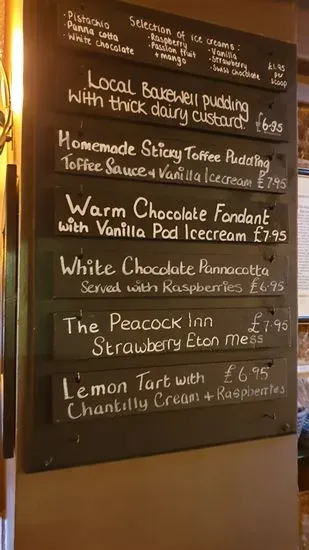 Selection of ice creams:
• Pistachio • Raspberry • Vanilla £1.95
• Panna cotta • Passion fruit • Strawberry per
• White chocolate + mango • Swiss chocolate scoop
Local Bakewell pudding
with thick dairy custard. £6.95
Homemade Sticky Toffee Pudding
Toffee Sauce + Vanilla Icecream £7.95
Warm Chocolate Fondant
with Vanilla Pod Icecream £7.95
White Chocolate Pannacotta
Served with Raspberries £6.95
The Peacock Inn £7.95
Strawberry Eton mess
Lemon Tart with £6.95
Chantilly Cream + Raspberries